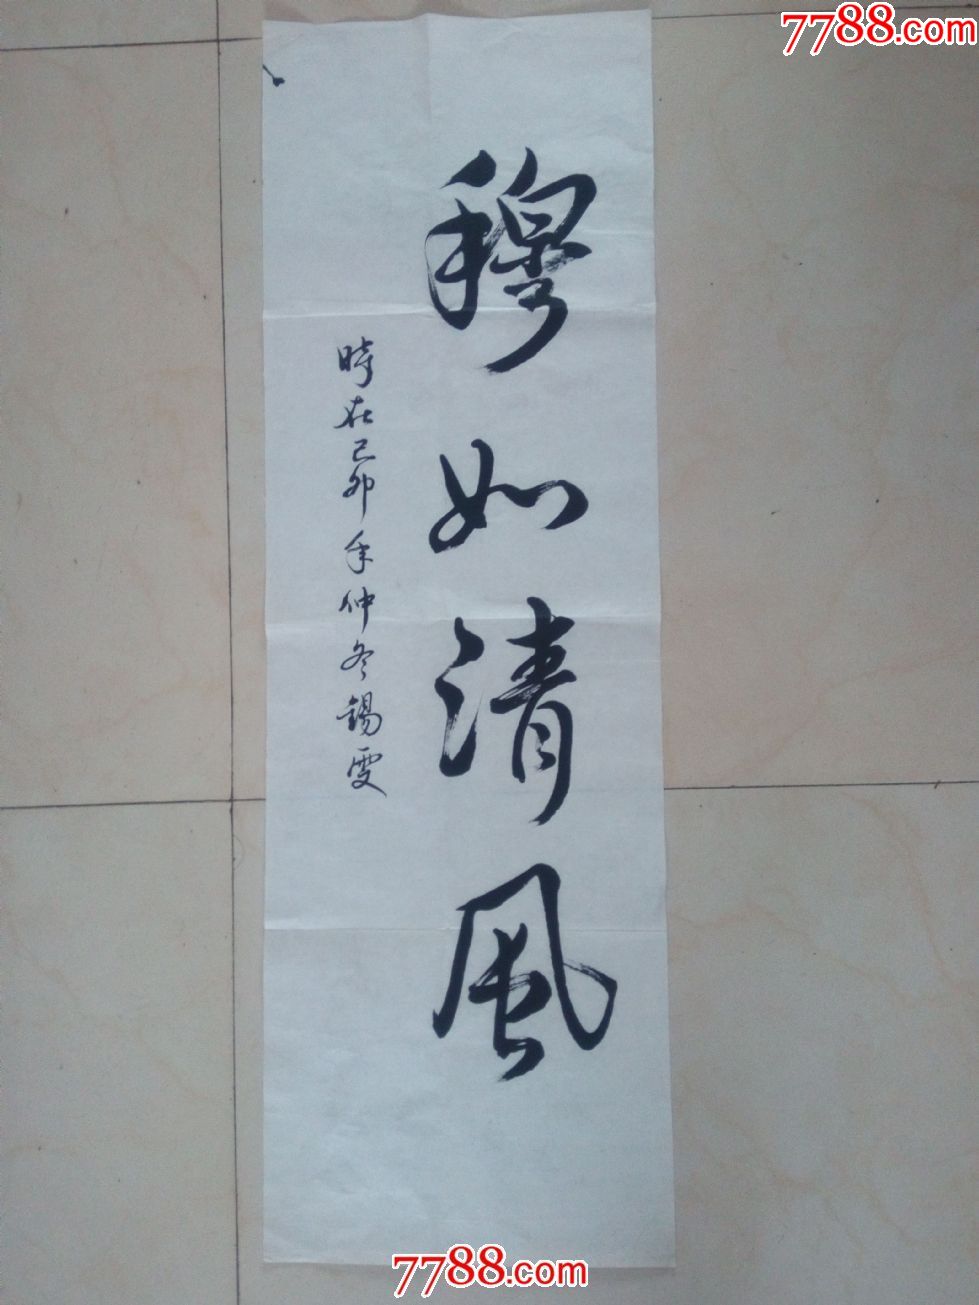 7788.com
穆如清风
時在己卯年仲冬錫雯
7788.com